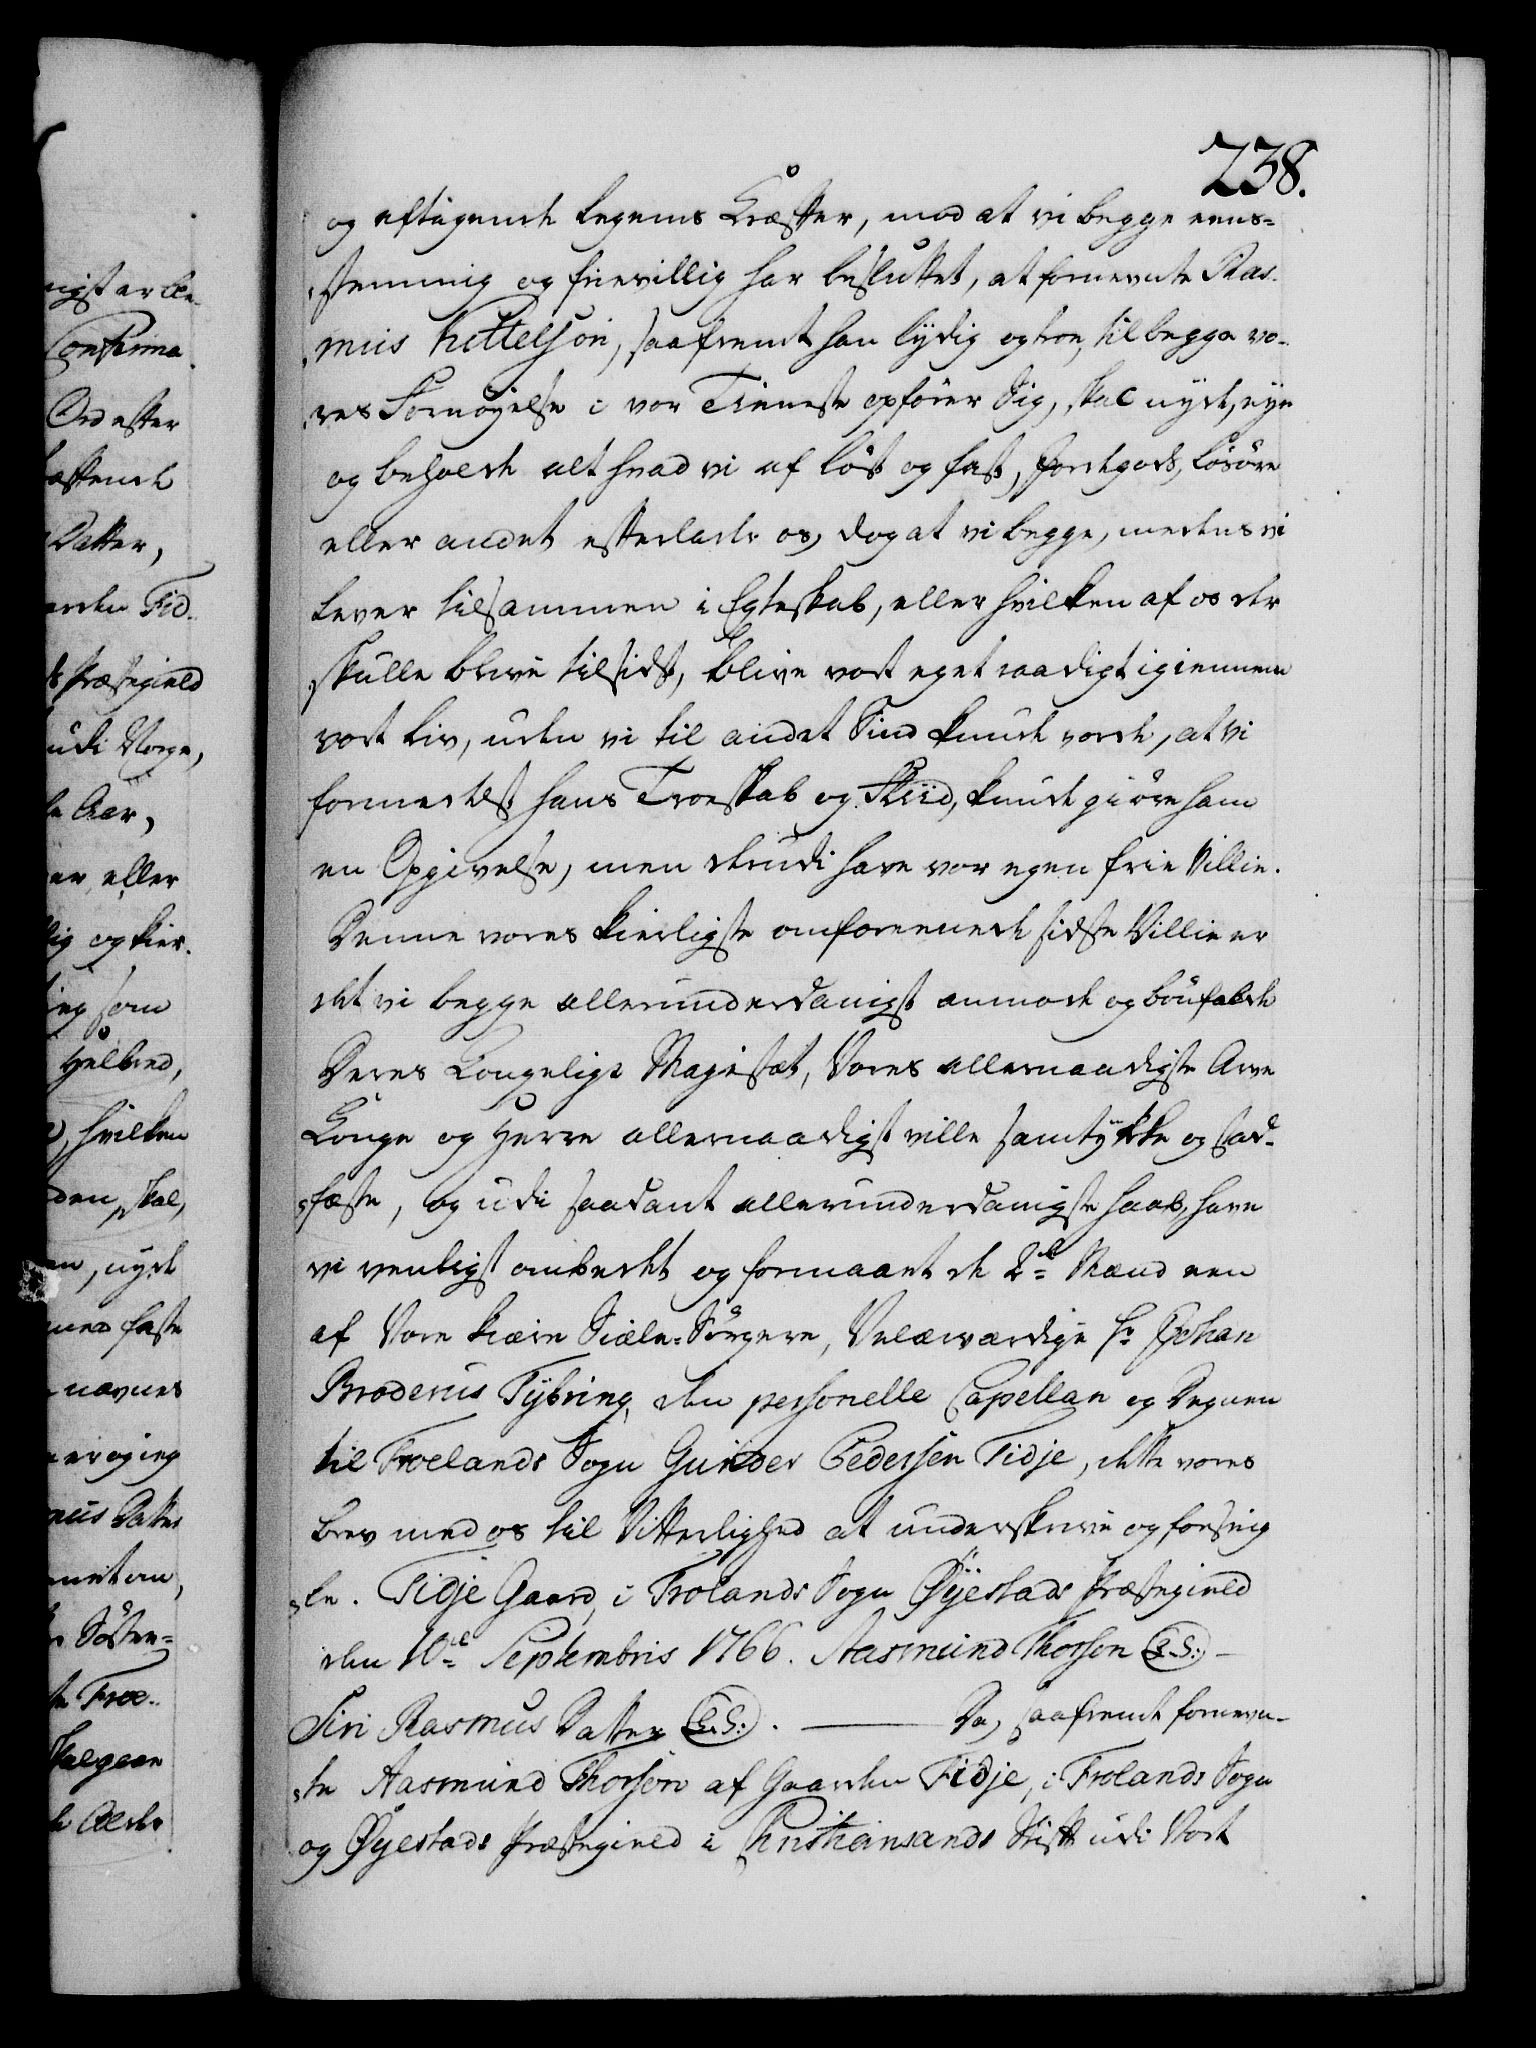 238.
og aftagende Legems Kræfter, med at vi begge eens-
stemmig og frievillig har besluttet, at fornevnte Ras-
mus Kettelsøn, saafremt han lydig og troe, til begge vo-
res Fornøyelse i vor Tieneste opfører sig, skal nyde, eye
og beholde alt hvad vi af løst og fast, Jordegods, Løsøre
eller andet efterlade os, dog at vi begge, medens vi
Lever tilsammen i Egteskab, eller hvilken af os der
skulle blive tilsidst, blive vort eget raadigt igiennem
vort Liv, uden vi til andet Sind kunde vorde, at vi
formedelst hans Troeskab og Fliid, kunde giøre ham
en Opgivelse, men derudi have vor egen frie Villie.
Denne vores kierligste omforenede sidste Villie er
det vi begge allerunderdanigst anmode og bønfalde
Deres Kongelige Majestæt, Vores allernaadigste Arve
Konge og Herre allernaadigst ville samtykke og stad-
fæste, og udi saadant allerunderdanigste Haab, have
vi venligst ombedet og formaaet de 2de Mænd een
af Vore kiære Siæle-Sørgere, Velærværdige Hr Johan
Broderus Tybring, den personelle Capellan og Degnen
til Froelands Sogn Gunder Pedersen Tidje, dette vores
brev med os til Vitterlighed at underskrive og forseig-
le. Tidje Gaard, i Frolands Sogn Øyestads Præstegield
den 10de Septembris 1766. Aasmund Thorson (L.S.) –
Siri Rasmus Datter (L.S.). — Da, saafremt fornevn-
te Aasmund Thorson af Gaarden Tidje, i Frolands Sogn
og Øyestads Præstegield i Christiansands Stift udi Vort